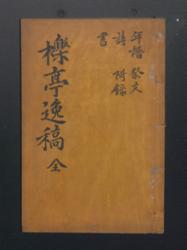 年譜 祭文
詩 附錄
書
櫟亭逸稿 全